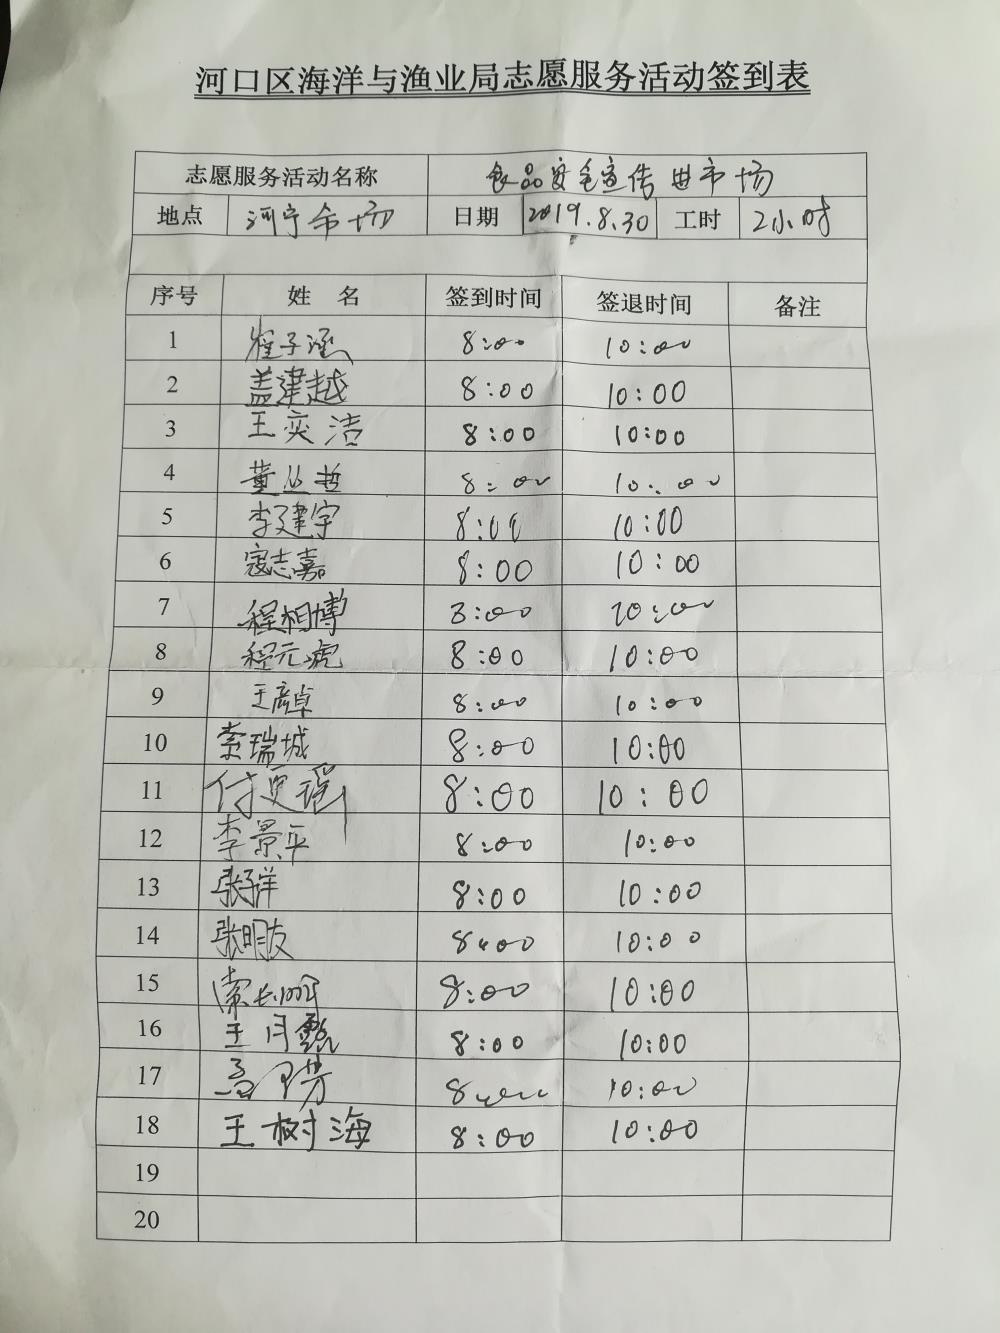 河口区海洋与渔业局志愿服务活动签到表
志愿服务活动名称 食品安全宣传进市场
地点 河宁市场 日期 2019.8.30 工时 2小时
序号 姓名 签到时间 签退时间 备注
1 崔子涵 8:00 10:00
2 盖建越 8:00 10:00
3 王奕洁 8:00 10:00
4 黄丛哲 8:00 10:00
5 李建宇 8:00 10:00
6 寇志嘉 8:00 10:00
7 程相博 8:00 10:00
8 程元虎 8:00 10:00
9 王彦卓 8:00 10:00
10 索瑞城 8:00 10:00
11 付更瑶 8:00 10:00
12 李景平 8:00 10:00
13 张子洋 8:00 10:00
14 张明友 8:00 10:00
15 8:00 10:00
16 王月甄 8:00 10:00
17 8:00 10:00
18 王树海 8:00 10:00
19
20